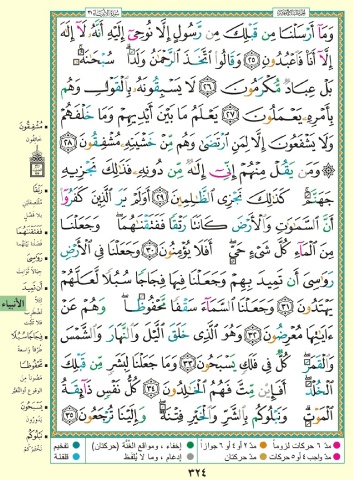 وَمَآ أَرْسَلْنَا مِن قَبْلِكَ مِن رَّسُولٍ إِلَّا نُوحِىٓ إِلَيْهِ أَنَّهُۥ لَآ إِلَٰهَ
إِلَّآ أَنَا۠ فَٱعْبُدُونِ ٢٥ وَقَالُوا۟ ٱتَّخَذَ ٱلرَّحْمَٰنُ وَلَدًا ۗ سُبْحَٰنَهُۥ ۚ
بَلْ عِبَادٌ مُّكْرَمُونَ ٢٦ لَا يَسْبِقُونَهُۥ بِٱلْقَوْلِ وَهُم
بِأَمْرِهِۦ يَعْمَلُونَ ٢٧ يَعْلَمُ مَا بَيْنَ أَيْدِيهِمْ وَمَا خَلْفَهُمْ
وَلَا يَشْفَعُونَ إِلَّا لِمَنِ ٱرْتَضَىٰ وَهُم مِّنْ خَشْيَتِهِۦ مُشْفِقُونَ ٢٨
۞ وَمَن يَقُلْ مِنْهُمْ إِنِّىٓ إِلَٰهٌ مِّن دُونِهِۦ فَذَٰلِكَ نَجْزِيهِ
جَهَنَّمَ ۚ كَذَٰلِكَ نَجْزِى ٱلظَّٰلِمِينَ ٢٩ أَوَلَمْ يَرَ ٱلَّذِينَ كَفَرُوٓا۟
أَنَّ ٱلسَّمَٰوَٰتِ وَٱلْأَرْضَ كَانَتَا رَتْقًا فَفَتَقْنَٰهُمَا ۖ وَجَعَلْنَا
مِنَ ٱلْمَآءِ كُلَّ شَىْءٍ حَىٍّ ۖ أَفَلَا يُؤْمِنُونَ ٣٠ وَجَعَلْنَا فِى ٱلْأَرْضِ
رَوَٰسِىَ أَن تَمِيدَ بِهِمْ وَجَعَلْنَا فِيهَا فِجَاجًا سُبُلًا لَّعَلَّهُمْ
يَهْتَدُونَ ٣١ وَجَعَلْنَا ٱلسَّمَآءَ سَقْفًا مَّحْفُوظًا ۖ وَهُمْ عَنْ
ءَايَٰتِهَا مُعْرِضُونَ ٣٢ وَهُوَ ٱلَّذِى خَلَقَ ٱلَّيْلَ وَٱلنَّهَارَ وَٱلشَّمْسَ
وَٱلْقَمَرَ ۖ كُلٌّ فِى فَلَكٍ يَسْبَحُونَ ٣٣ وَمَا جَعَلْنَا لِبَشَرٍ مِّن قَبْلِكَ
ٱلْخُلْدَ ۖ أَفَإِي۟ن مِّتَّ فَهُمُ ٱلْخَٰلِدُونَ ٣٤ كُلُّ نَفْسٍ ذَآئِقَةُ
ٱلْمَوْتِ ۗ وَنَبْلُوكُم بِٱلشَّرِّ وَٱلْخَيْرِ فِتْنَةً ۖ وَإِلَيْنَا تُرْجَعُونَ ٣٥
مُشْفِقُونَ
خائفون
رَتْقًا
فَفَتَقْنَاهُمَا
رَوَاسِيَ
أَن تَمِيدَ
فِجَاجًا سُبُلًا
مَحْفُوظًا
يَسْبَحُونَ
نَبْلُوكُم
الأنبياء
مدّ ٦ حركات لزوماً
مدّ ٢ أو ٤ أو ٦ جوازاً
إخفاء، ومواقع الغُنَّة (حركتان)
تفخيم
مدّ واجب ٤ أو ٥ حركات
مدّ حركتان
إدغام، وما لا يُلفَظ
قلقلة
٣٢٤